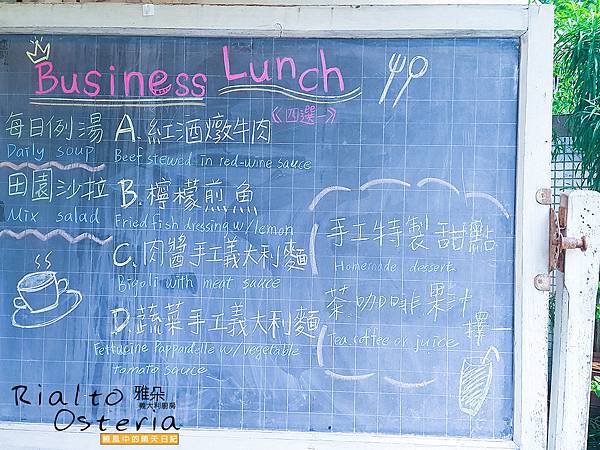 Business Lunch
《四選一》
每日例湯
Daily soup
田園沙拉
Mix salad
A. 紅酒燉牛肉
Beef stewed in red-wine sauce
B. 檸檬煎魚
Fried fish dressing w/lemon
C. 肉醬手工義大利麵
Bigoli with meat sauce
D. 蔬菜手工義大利麵
Fettucine Pappardelle w/ vegetable
tomato sauce
手工特製甜點
Homemade dessert
茶 咖啡 果汁
擇一
Tea coffee or juice
Rialto 雅朵
義大利廚房
Osteria
微風中的晴天日記